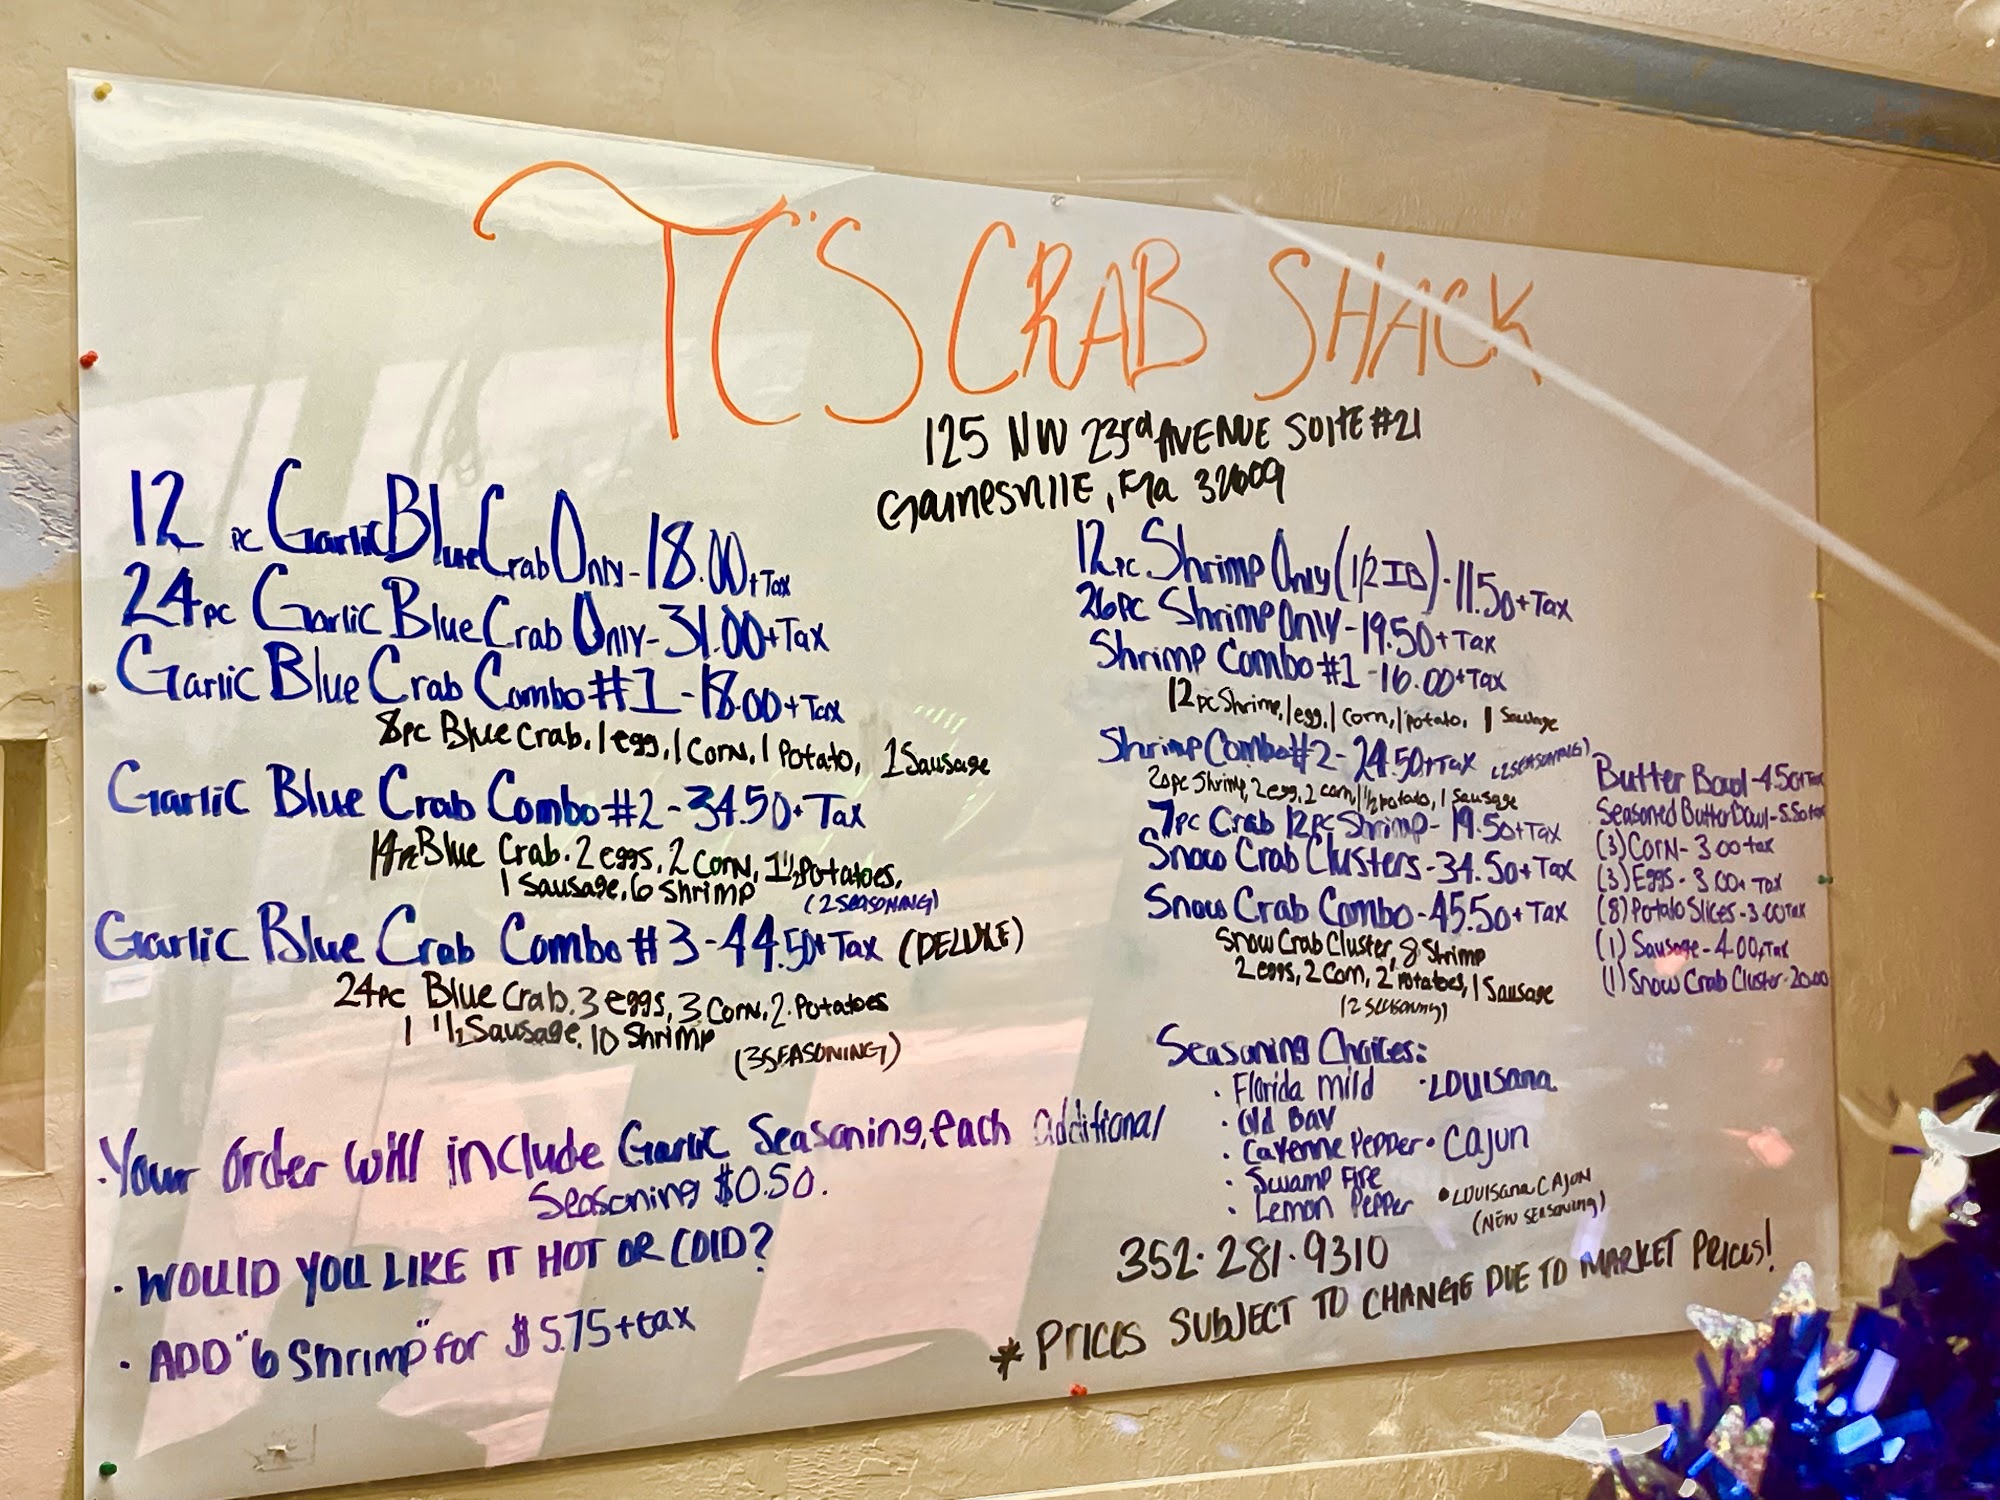 TC'S CRAB SHACK
125 NW 23rd AVENUE SUITE #21
Gainesville, Fla 32609
12 pc Garlic Blue Crab Only - 18.00 + Tax
24 pc Garlic Blue Crab Only - 31.00 + Tax
Garlic Blue Crab Combo #1 - 18.00 + Tax
8pc Blue Crab, 1 egg, 1 Corn, 1 Potato, 1 Sausage
Garlic Blue Crab Combo #2 - 34.50 + Tax
14pc Blue Crab. 2 eggs, 2 Corn, 1 1/2 Potatoes,
1 Sausage, 6 Shrimp (2 SEASONING)
Garlic Blue Crab Combo #3 - 44.50 + Tax (DELUXE)
24pc Blue Crab, 3 eggs, 3 Corn, 2 Potatoes
1 1/2 Sausage, 10 Shrimp (3 SEASONING)
· Your order will include Garlic Seasoning, each additional
Seasoning $0.50.
· WOULD YOU LIKE IT HOT OR COLD?
· ADD "6 Shrimp" for $5.75 + tax
12pc Shrimp Only (1/2 lb) - 11.50 + Tax
26pc Shrimp Only - 19.50 + Tax
Shrimp Combo #1 - 16.00 + Tax
12pc Shrimp, 1 egg, 1 corn, 1 potato, 1 Sausage
Shrimp Combo #2 - 24.50 + Tax (2 SEASONING)
20pc Shrimp, 2 egg, 2 corn, 1 1/2 potato, 1 Sausage
7pc Crab 12pc Shrimp - 19.50 + Tax
Snow Crab Clusters - 34.50 + Tax
Snow Crab Combo - 45.50 + Tax
Snow Crab Cluster, 8 Shrimp
2 eggs, 2 corn, 2 Potatoes, 1 Sausage
(2 Seasoning)
Butter Bowl - 4.50 + Tax
Seasoned Butter Bowl - 5.50 + tax
(3) Corn - 3.00 tax
(3) Eggs - 3.00 + Tax
(8) Potato Slices - 3.00 Tax
(1) Sausage - 4.00 + Tax
(1) Snow Crab Cluster - 20.00
Seasoning Choices:
· Florida Mild · Louisana
· Old Bay
· Cayenne Pepper · Cajun
· Swamp Fire
· Lemon Pepper · Louisana CAJUN
(New Seasoning)
352·281·9310
* PRICES SUBJECT TO CHANGE DUE TO MARKET PRICES!